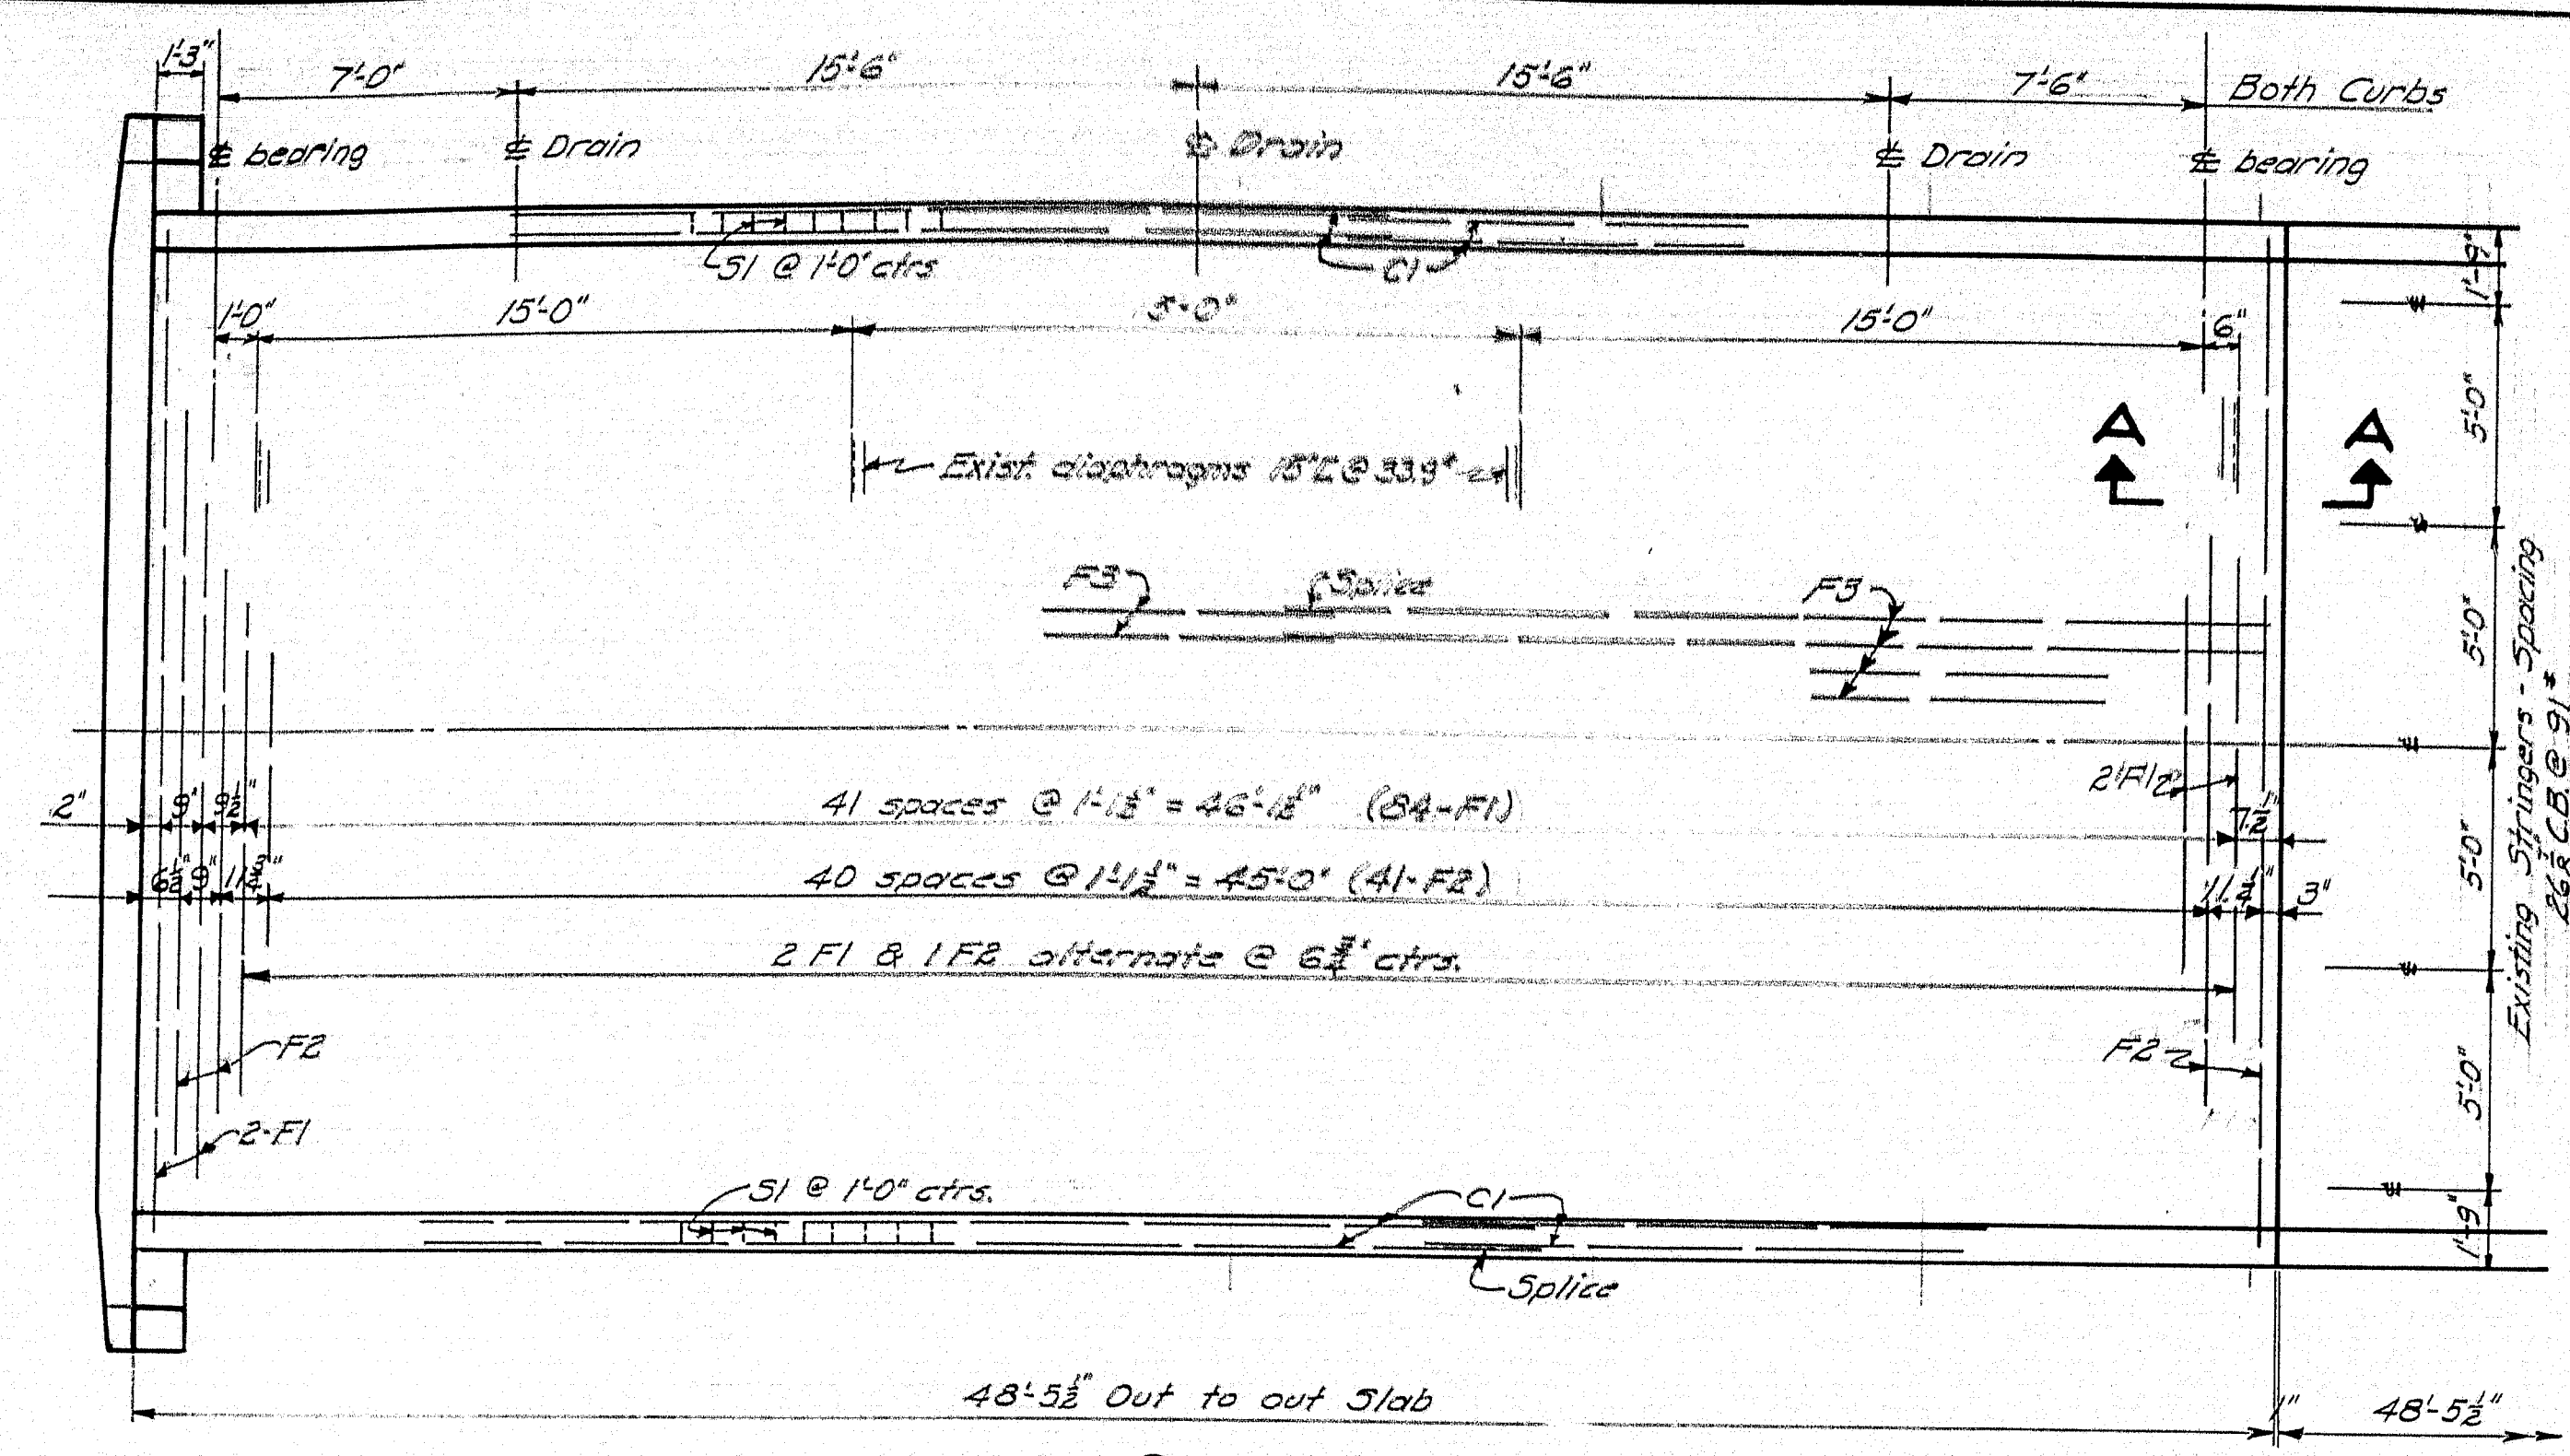 1'-3"
7'-0"
15'-6"
15'-6"
7'-6"
Both Curbs
℄ bearing
℄ Drain
℄ Drain
℄ Drain
℄ bearing
S1 @ 1'-0" ctrs
C1
1'-9"
1'-0"
15'-0"
15'-0"
6"
5'-0"
A
A
Exist. diaphragms 15"[ @ 33.9#
F3
Splice
F3
5'-0"
Existing Stringers - Spacing
26 7/8 C.B. @ 91#
2"
9"
9 1/2"
41 spaces @ 1'-1 1/2" = 46'-1 1/2" (84-F1)
2-F1
7 1/2"
5'-0"
6 1/2"
9"
11 3/4"
40 spaces @ 1'-1 1/2" = 45'-0" (41-F2)
11 1/4"
3"
2 F1 & 1 F2 alternate @ 6 3/4" ctrs.
F2
F2
5'-0"
2-F1
S1 @ 1'-0" ctrs.
C1
1'-9"
Splice
48'-5 1/2" Out to out Slab
1"
48'-5 1/2"